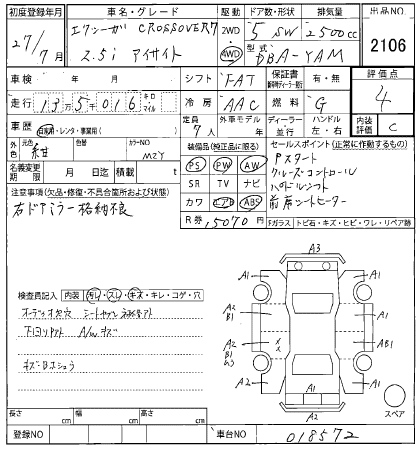 初度登録年月 車名・グレード 駆動 ドア数・形状 排気量 出品NO
27/7月 エクシーガ CROSSOVER7 2WD 5 SW 2500cc 2106
2.5i アイサイト 4WD 型式 DBA-YAM
車検 年 月 シフト FAT 保証書 有・無 評価点
走行 13万5千016 キロ マイル 冷房 AAC 燃料 G 4
車歴 自家用・レンタ・事業用( ) 定員 7人 ディーラー 並行 ハンドル 左・右 内装評価 C
外色 元色 紺 色替 カラーNO M2Y 装備品(純正品に限る) セールスポイント(正常に作動するもの)
名義変更期限 月 日迄 積載 t PS PW AW Pスタート
注意事項(欠品・修復・不具合箇所および状態) SR TV ナビ クルーズコントロール
右ドアミラー格納不良 カワ エアB ABS パドルシフト
R券 15070円 前席シートヒーター
Fガラス トビ石・キズ・ヒビ・ワレ・リペア跡
A3
A1 A1
検査員記入 内装 汚レ・スレ・キズ・キレ・コゲ・穴
A2 B1 A1
A/Wキズ
A1 AB1
A2 B1
A2 A1 A1
A2
スペア
長さ cm 幅 cm 高さ cm
登録NO 車台NO 018572